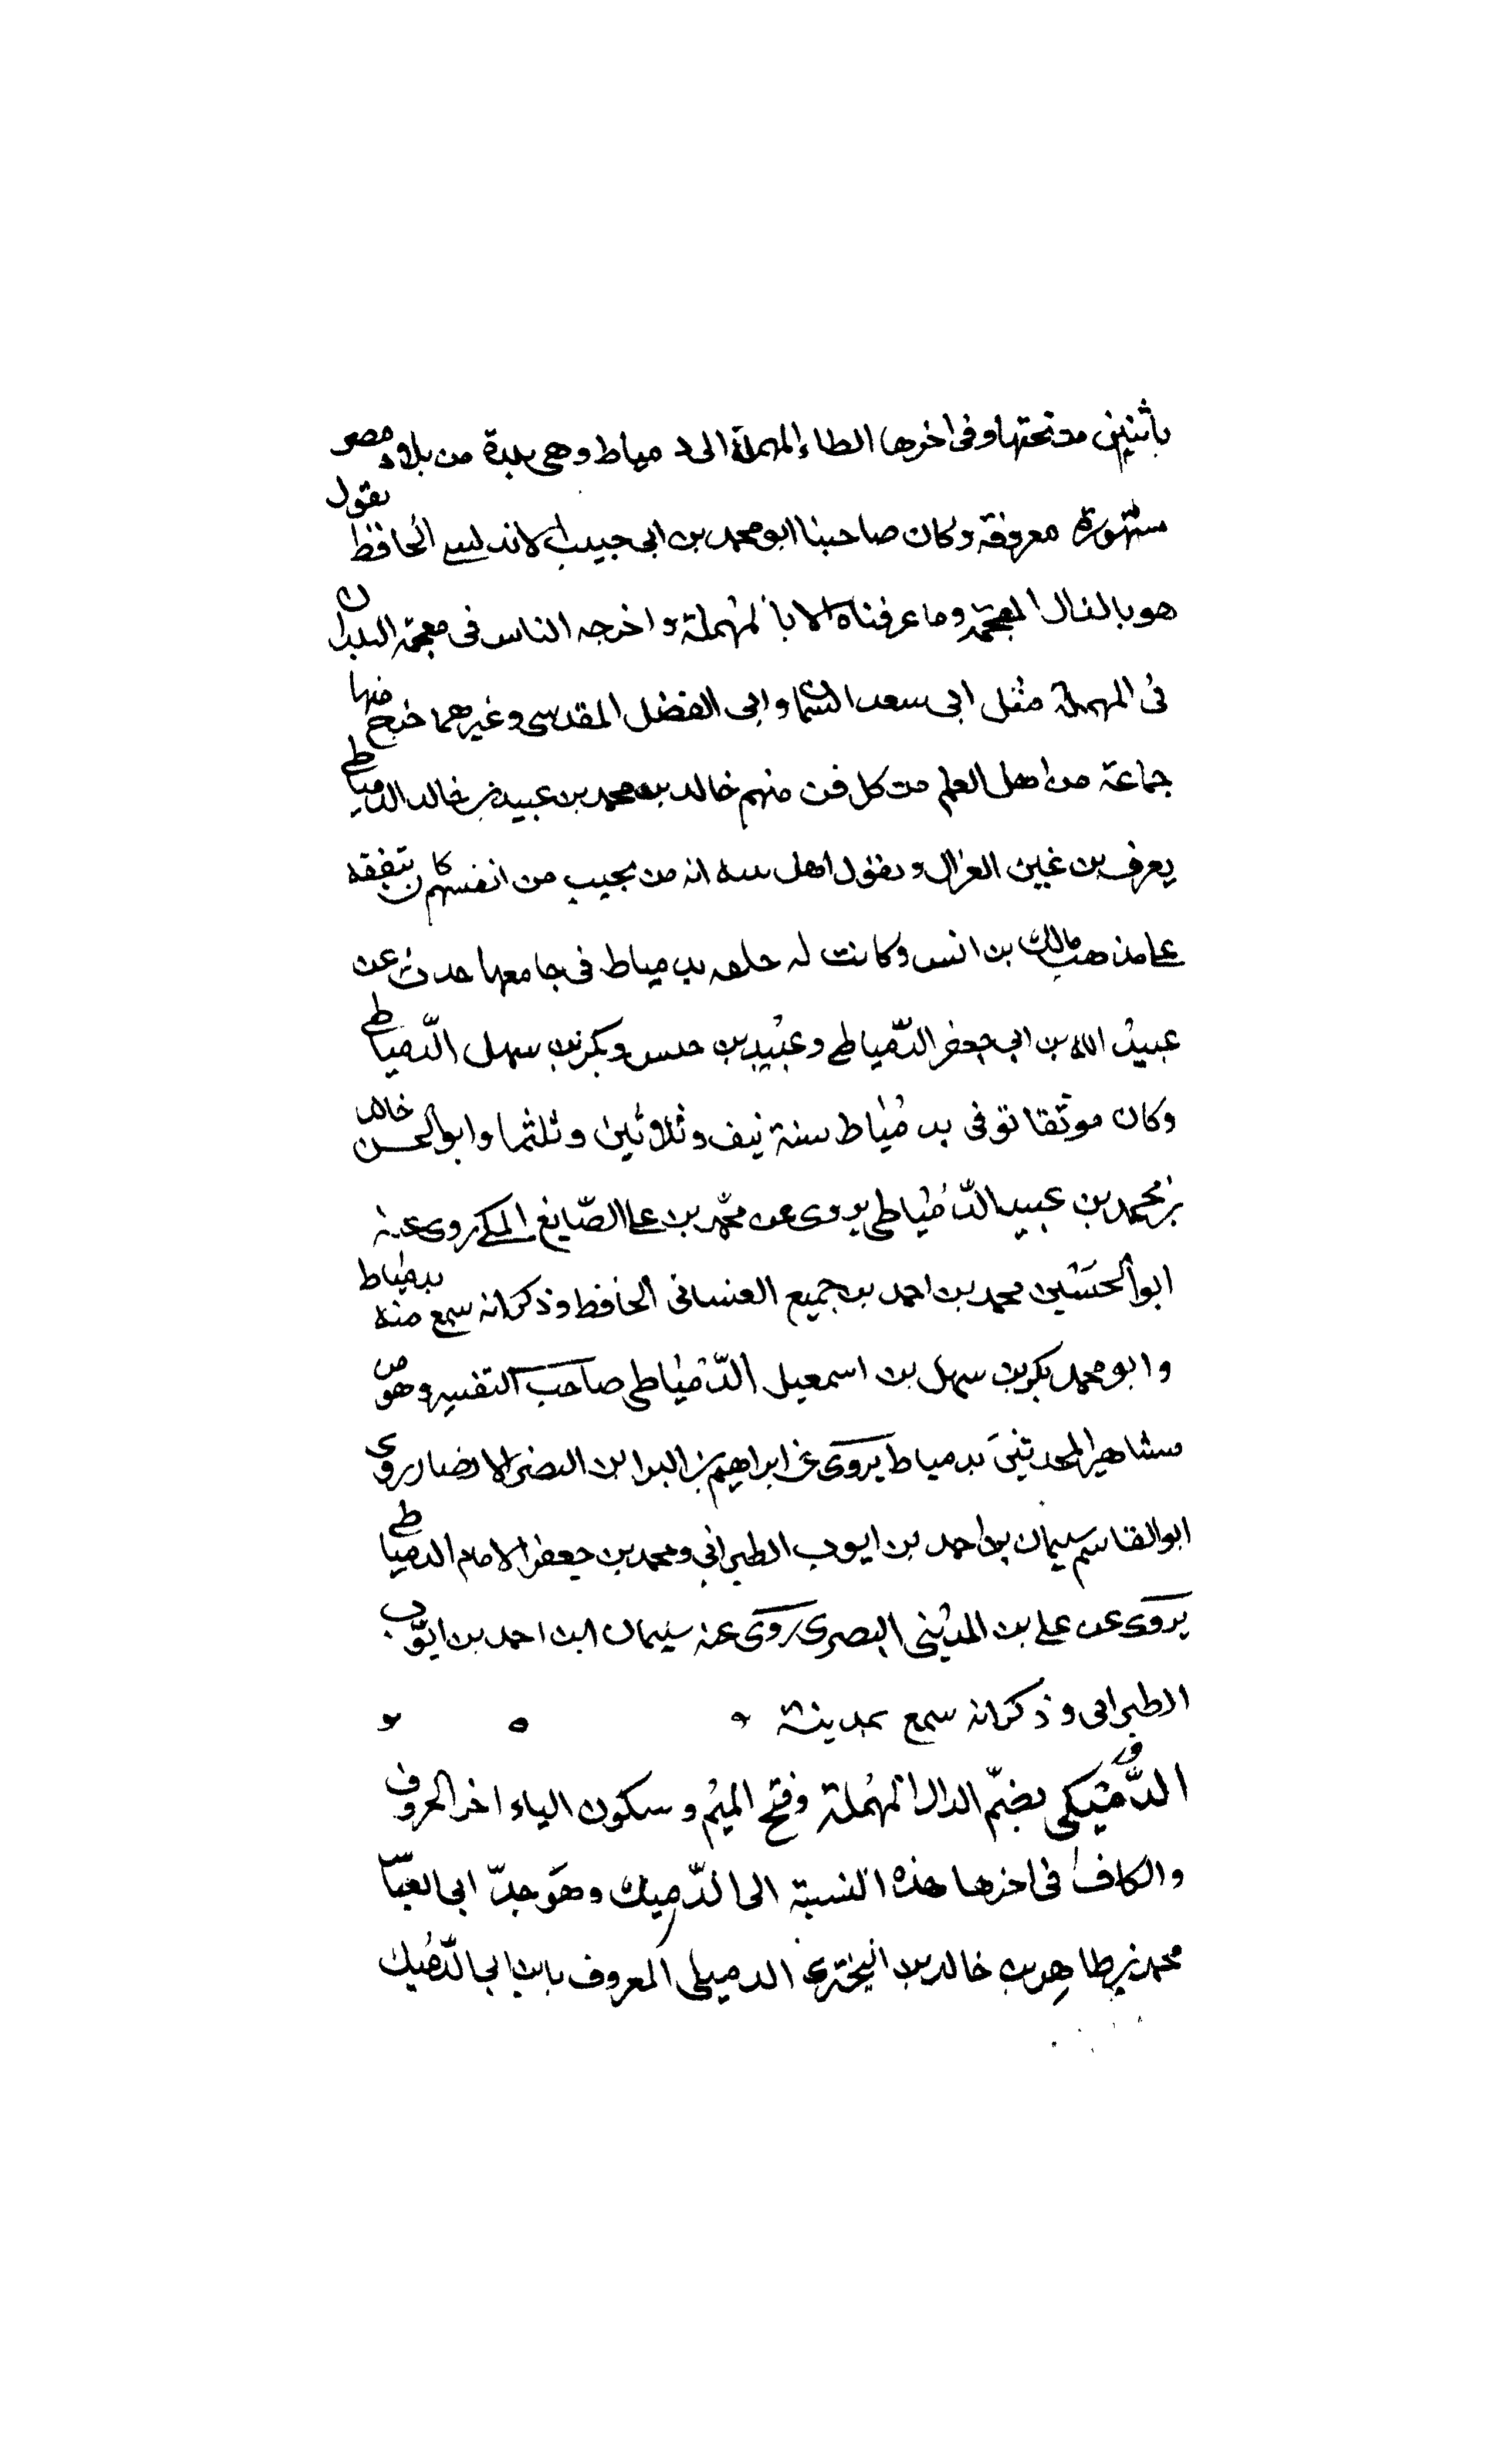 باثنين من تحتها وفى اخرها الطاء المهملة الى دمياط وهى بلدة من بلاد مصر
مشهورة معروفة وكان صاحبنا ابو محمد بن ابى حبيب الاندلسى الحافظ يقول
هو بالذال المعجمة وما عرفناه الا بالمهملة واخرجه الناس فى معجمة البلدان
فى المهملة مثل ابى سعد السمان وابى الفضل المقدسى وغيرهما خرج منها
جماعة من اهل العلم من كل فن منهم خالد بن محمد بن عبيد بن خالد الدمياطى
يعرف بن عين الغزال ويقول اهل بيته انه من تجيب من انفسهم كان يتفقه
على مذهب مالك بن انس وكانت له حلقه بدمياط فى جامعها حدث عن
عبيد الله بن ابى جعفر الدّمياطى وعبيد بن وبكر بن سهل الدّمياطى
وكان موثقا توفى بدمياط سنة نيف وثلاثين وثلثما وابو الحسن خالد
بن محمد بن عبيد الدّمياطى يروى عن محمّد بن على الصّايغ المكى روى عنه
ابو الحسين محمد بن احمد بن جميع الغسانى الحافظ وذكر انه سمع منه بدمياط
وابو محمد بكر بن سهل بن اسمعيل الدّمياطى صاحب التفسير وهو من
مشاهير المحدثين بدمياط يروى عن ابراهيم بن البرا بن النضر الانصار روى
ابو القاسم سليمان بن احمد بن ايوب الطبرانى ومحمد بن جعفر الامام الدمياطى
يروى عن على بن المدينى البصرى روى عنه سليمان ابن احمد بن ايوّب
الطبرانى وذكر انه سمع بمدينته
الدُّمَيكى بضمّ الدال المهملة وفتح الميم وسكون الياء اخر الحروف
والكاف فى اخرها هذه النسبة الى الدّميك وهو جدّ ابى العبّاس
محمد بن طاهر بن خالد بن البخترى الدميكى المعروف بابن ابى الدّميك